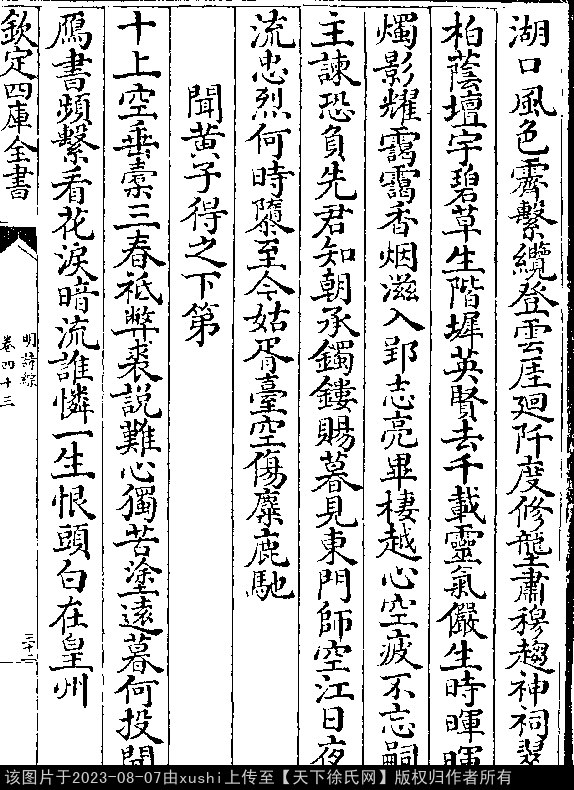 湖口風色霽繫纜登雲厓廻阡度修壟肅穆趨神祠翠
柏蔭壇宇碧草生階墀英賢去千載靈氣儼生時暉暉
燭影耀靄靄香烟滋入郢志亮畢棲越心空疲不忘嗣
主諫恐負先君知朝承鐲鏤賜暮見東門師空江日夜
流忠烈何時隳至今姑胥臺空傷麋鹿馳
聞黃子得之下第
十上空垂橐三春祗弊裘說難心獨苦塗遠暮何投
鴈書頻繫看花淚暗流誰憐一生恨頭白在皇州
欽定四庫全書
明詩綜
卷四十三
三十二
该图片于2023-08-07由xushi上传至【天下徐氏网】版权归作者所有